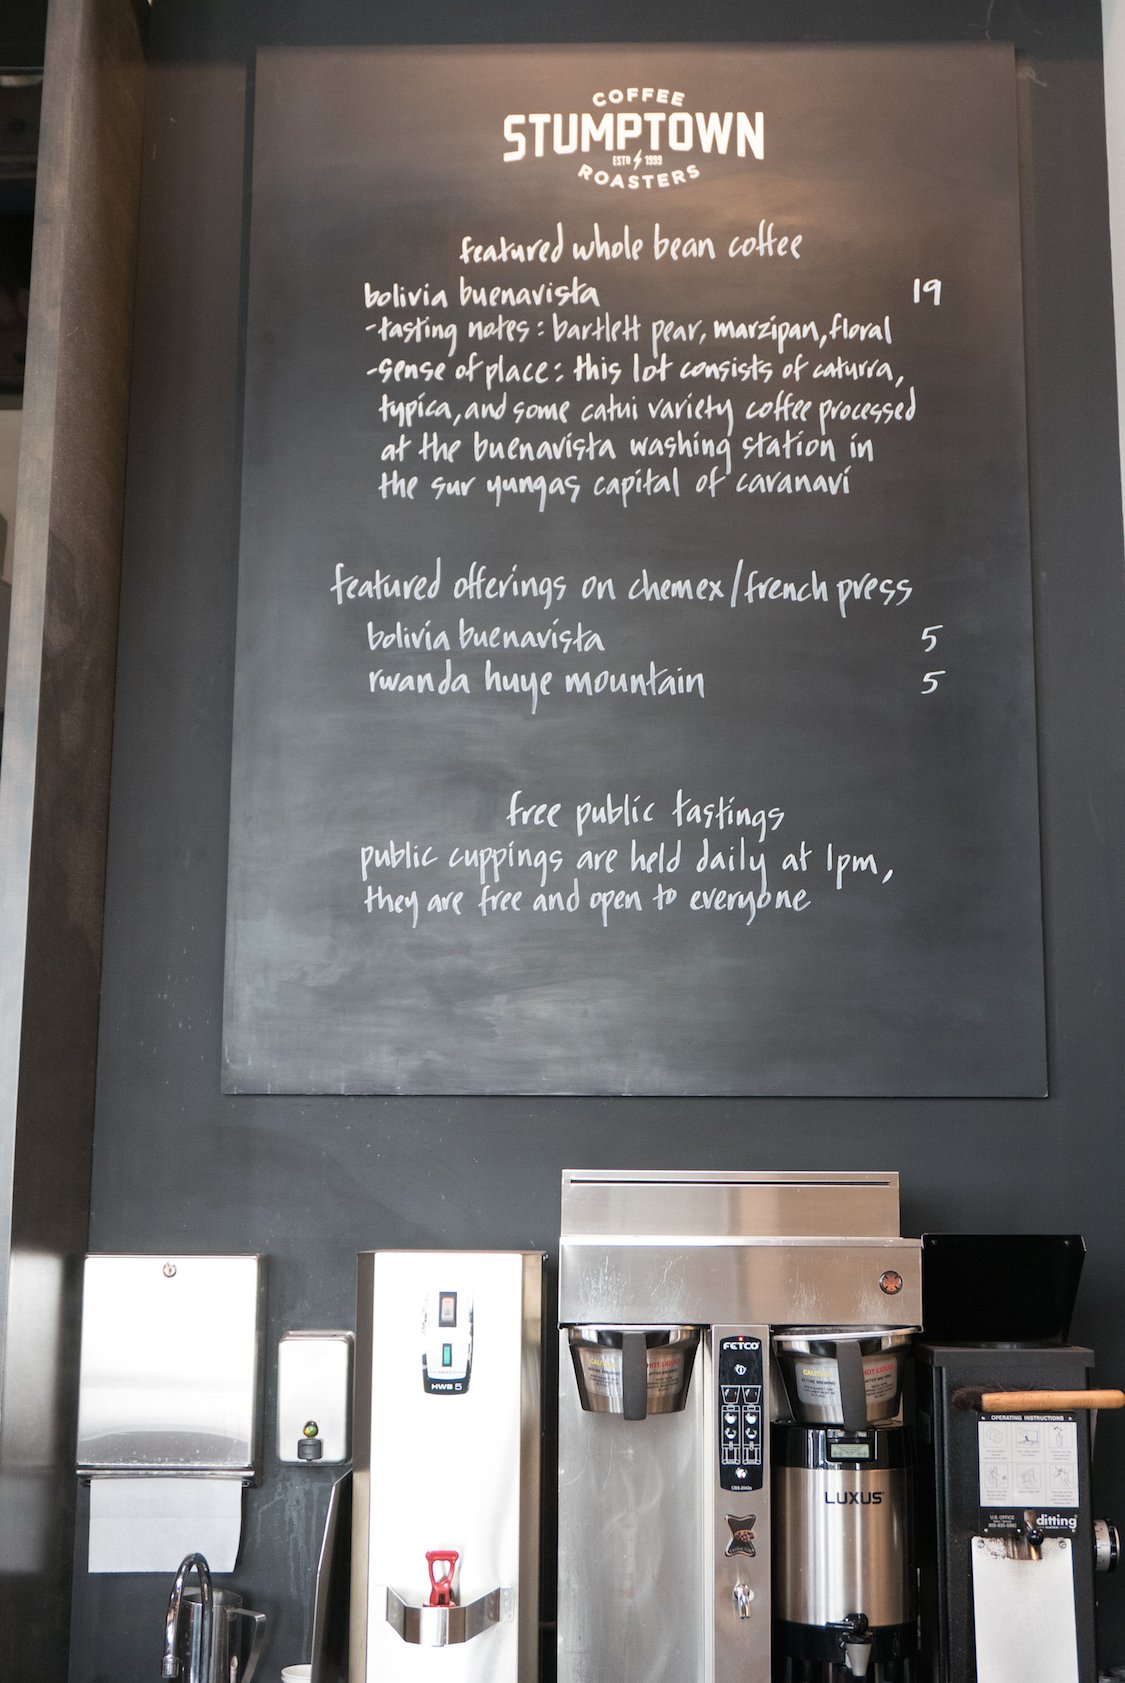 COFFEE
STUMPTOWN
ESTD 1999
ROASTERS
featured whole bean coffee
bolivia buenavista 19
-tasting notes: bartlett pear, marzipan, floral
-sense of place: this lot consists of caturra,
typica, and some catui variety coffee processed
at the buenavista washing station in
the sur yungas capital of caranavi
featured offerings on chemex/french press
bolivia buenavista 5
rwanda huye mountain 5
free public tastings
public cuppings are held daily at 1pm,
they are free and open to everyone
HWB 5
FETCO
CAUTION
HOT LIQUID
HOT LIQUID
LUXUS
OPERATING INSTRUCTIONS
U.S. OFFICE
ditting